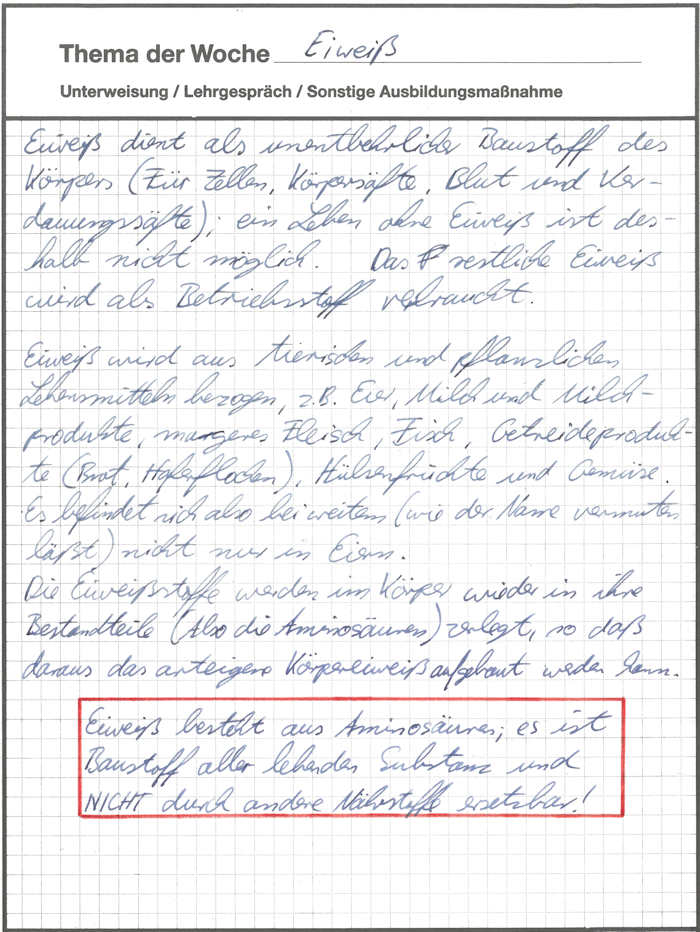 Thema der Woche Eiweiß
Unterweisung / Lehrgespräch / Sonstige Ausbildungsmaßnahme
Eiweiß dient als unentbehrlicher Baustoff des
Körpers (Für Zellen, Körpersäfte, Blut und Ver-
dauungssäfte); ein Leben ohne Eiweiß ist des-
halb nicht möglich. Das restliche Eiweiß
wird als Betriebsstoff verbraucht.
Eiweiß wird aus tierischen und pflanzlichen
Lebensmitteln bezogen, z.B. Eier, Milch und Milch-
produkte, mageres Fleisch, Fisch, Getreideproduk-
te (Brot, Haferflocken), Hülsenfrüchte und Gemüse.
Es befindet sich also bei weitem (wie der Name vermuten
läßt) nicht nur in Eiern.
Die Eiweißstoffe werden im Körper wieder in ihre
Bestandteile (Also die Aminosäuren) zerlegt, so daß
daraus das arteigene Körpereiweiß aufgebaut werden kann.
Eiweiß besteht aus Aminosäuren; es ist
Baustoff aller lebenden Substanz und
NICHT durch andere Nährstoffe ersetzbar!